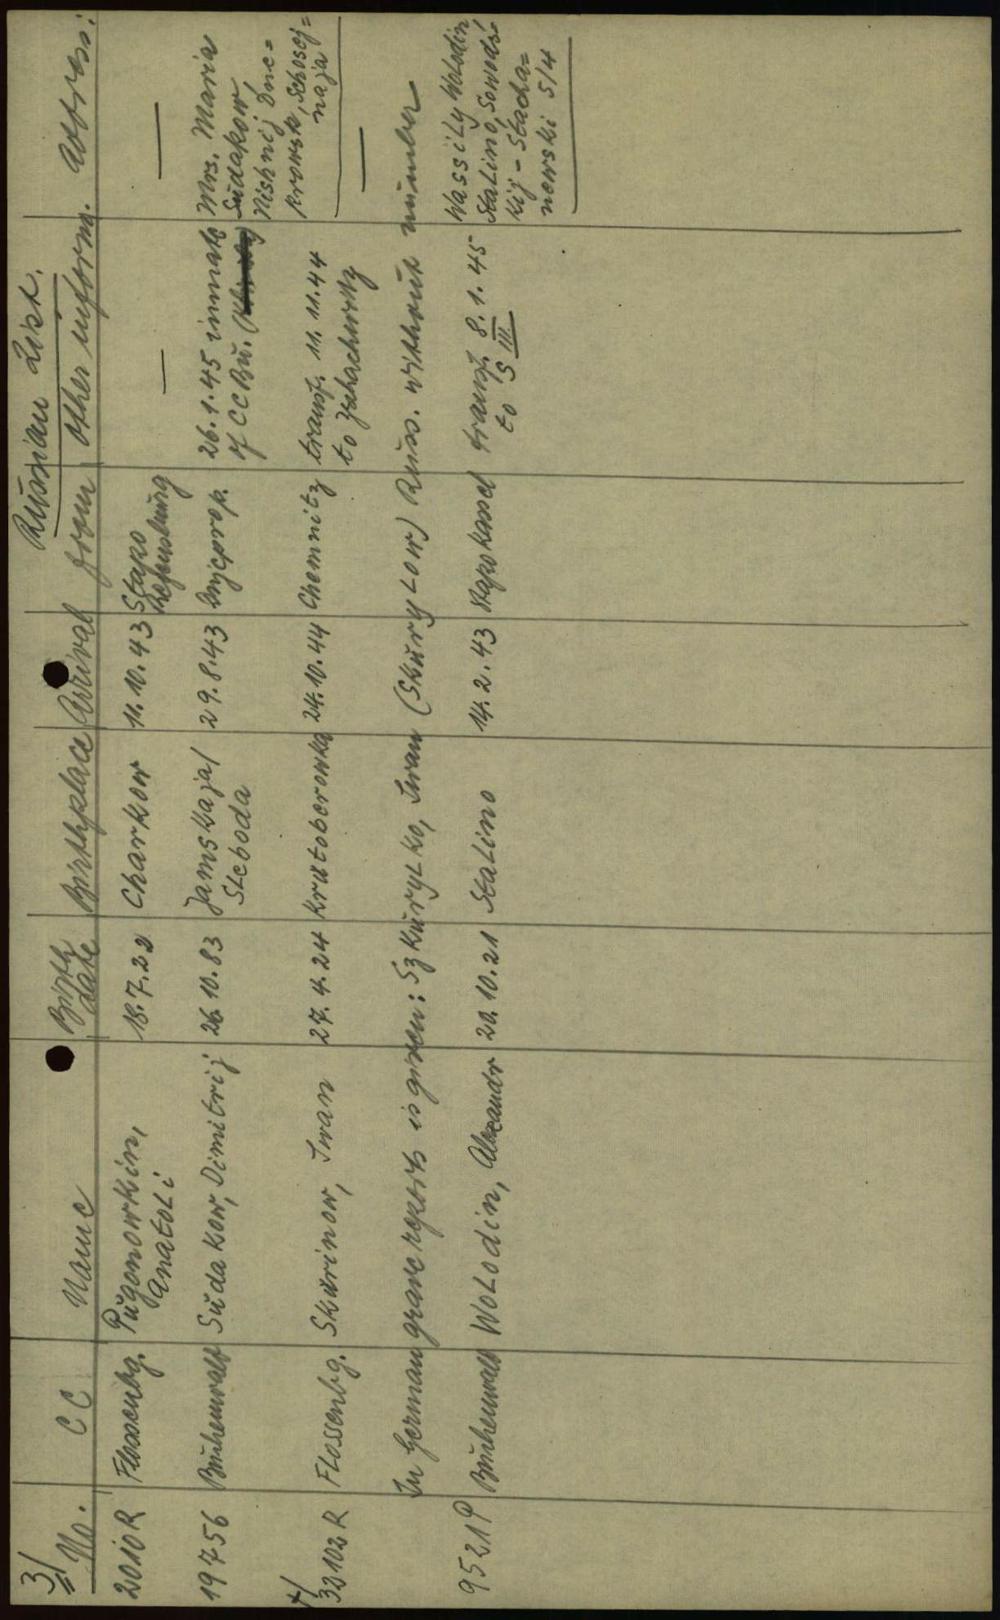 3/
Russian List.
No. CC Name Birth date Birthplace Arrival from other inform. Address:
2010 R Flossenbg. Pŭgonowkin, Anatoli 18.7.22 Charkow 11.10.43 Stapo — —
19756 Bŭchenwald Sŭdakow, Dimitrij 26.10.83 Jamskaja/ Sloboda 29.8.43 Dnjeprop. 26.1.45 inmate of CC Bŭ. Mrs. Maria Sŭdakow, Nishnij Dne=
prowsk, Schossej=
naja
+/
32102 R Flossenbg. Skŭrinow, Iwan 27.4.24 Krutoborowka 24.10.44 Chemnitz transf. 11.11.44 to Zschachwitz —
In German grave reports is given: Szkŭrylko, Iwan (Skŭrylow) Rŭss. withoŭt nŭmber
9521 P Bŭchenwald Wolodin, Alexandr 20.10.21 Stalino 14.2.43 Stapo Kassel transf. 8.1.45 to S III Wassily Wolodin
Stalino, Sowods=
kij - Stacha=
nowski 5/4